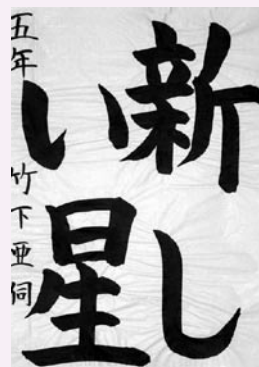 新し
い星
五年 竹下亜